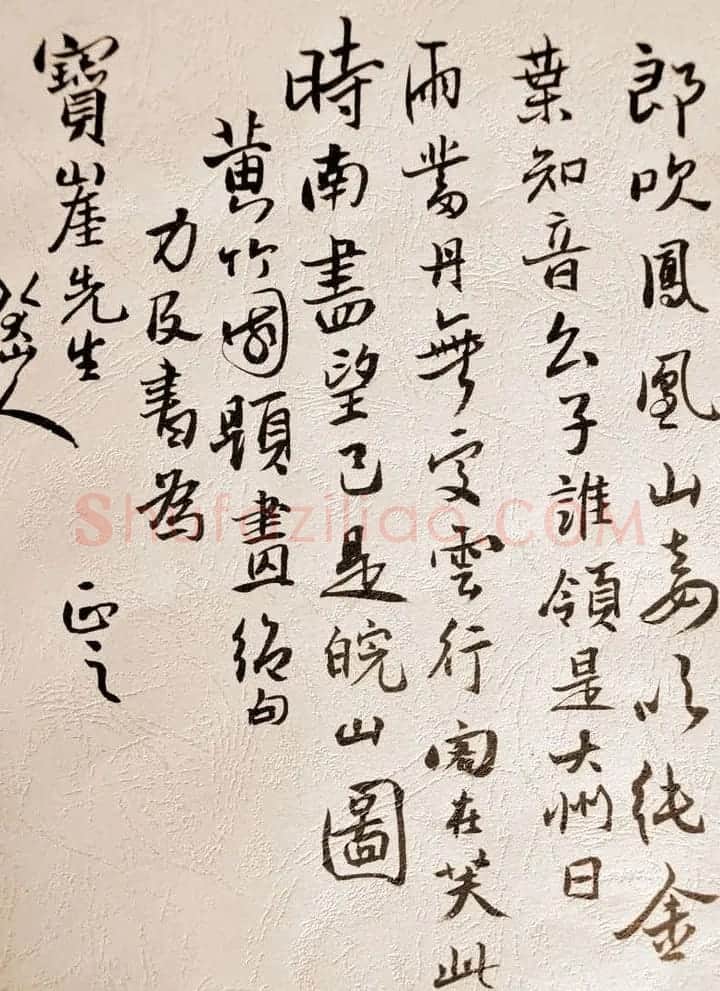 郎吹鳳凰山妾以純金
葉知音公子誰領是大州日
雨當丹無受雲行閣在芙此
時南盡望已是皖山圖
黃竹園題畫四絕句
力及書為 正之
寶崖先生
八大山人
Shufaziliao.COM